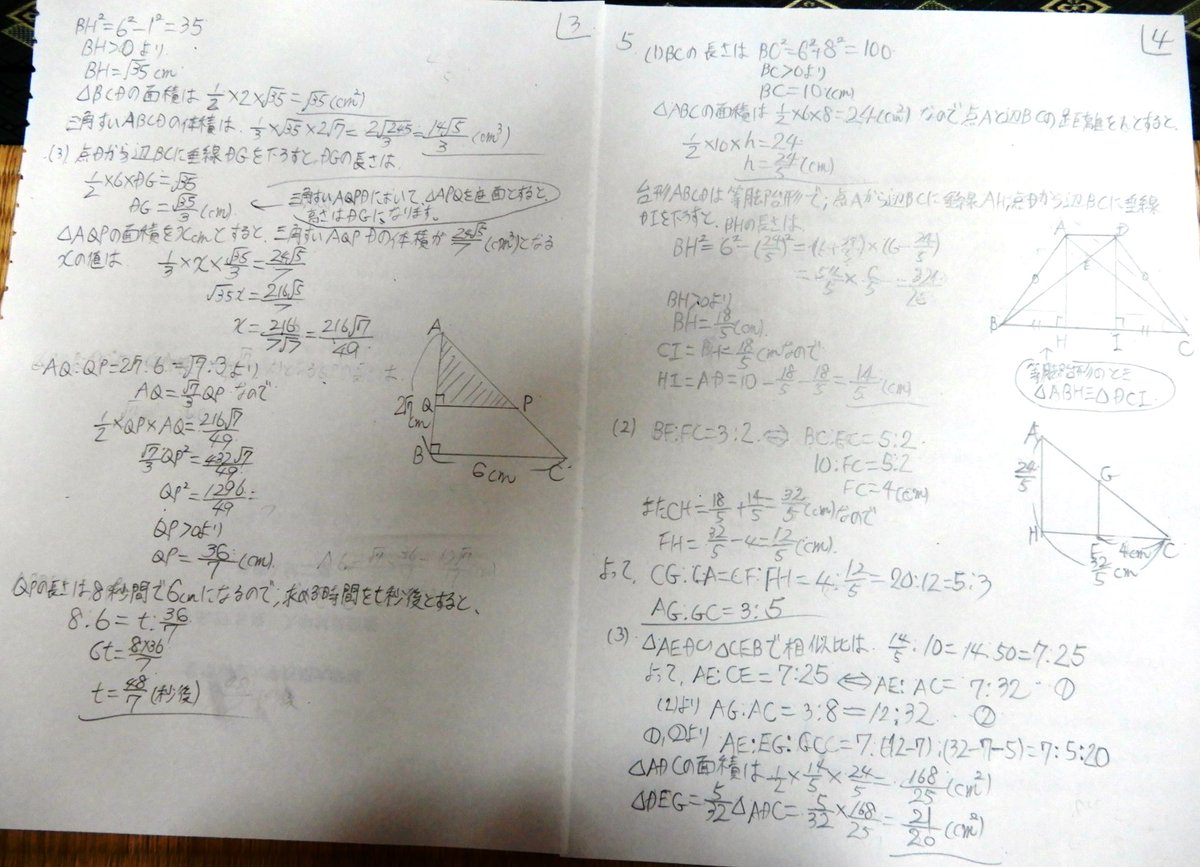 3
BH²=6²-1²=35
BH>0より
BH=√35cm
△BCDの面積は 1/2×2×√35=√35(cm²)
三角すいABCDの体積は、1/3×√35×2√7=2√245/3=14√5/3(cm³)
(3) 点Dから辺BCに垂線DGを下ろすとDGの長さは
1/2×6×DG=√35
DG=√35/3(cm)
三角すいAQPDにおいて、△APQを底面とすると
高さはDGになります。
△AQPの面積をxcmとすると、三角すいAQPDの体積が24√5/7(cm³)となる
xの値は 1/3×x×√35/3=24√5/7
√35x=216√5/7
x=216/7√7=216√7/49
AQ:QP=2√7:6=√7:3より
AQ=√7/3QPなので
1/2×QP×AQ=216√7/49
√7/3QP²=432√7/49
QP²=1296/49
QP>0より
QP=36/7(cm)
A
2√7cm
Q
P
B
6cm
C
QPの長さは8秒間で6cmになるので、求める時間をt秒後とすると、
8:6=t:36/7
6t=8×36/7
t=48/7(秒後)
4
5
(1)BCの長さは BC²=6²+8²=100
BC>0より
BC=10(cm)
△ABCの面積は1/2×6×8=24(cm²)なので点Aと辺BCの距離をhとすると、
1/2×10×h=24
h=24/5(cm)
台形ABCDは等脚台形で、点Aから辺BCに垂線AH、点Dから辺BCに垂線
DIを下ろすと、BHの長さは
BH²=6²-(24/5)²=(6+24/5)×(6-24/5)
=54/5×6/5=324/25
BH>0より
BH=18/5(cm)
CI=BH=18/5cmなので
HI=AD=10-18/5-18/5=14/5(cm)
A
D
E
B
H
I
C
等脚台形のとき
△ABH≡△DCI
(2) BF:FC=3:2⇔BC:FC=5:2
10:FC=5:2
FC=4(cm)
またCH=18/5+14/5=32/5(cm)なので
FH=32/5-4=12/5(cm)
よって、CG:GA=CF:FH=4:12/5=20:12=5:3
AG:GC=3:5
A
24/5
G
H
4cm
C
32/5cm
(3) △AED∽△CEBで相似比は 14/5:10=14:50=7:25
よって、AE:CE=7:25⇔AE:AC=7:32 ①
(2)より AG:AC=3:8=12:32 ②
①,②より AE:EG:GC=7:(12-7):(32-7-5)=7:5:20
△ADCの面積は1/2×14/5×24/5=168/25(cm²)
△DEG=5/32△ADC=5/32×168/25=21/20(cm²)